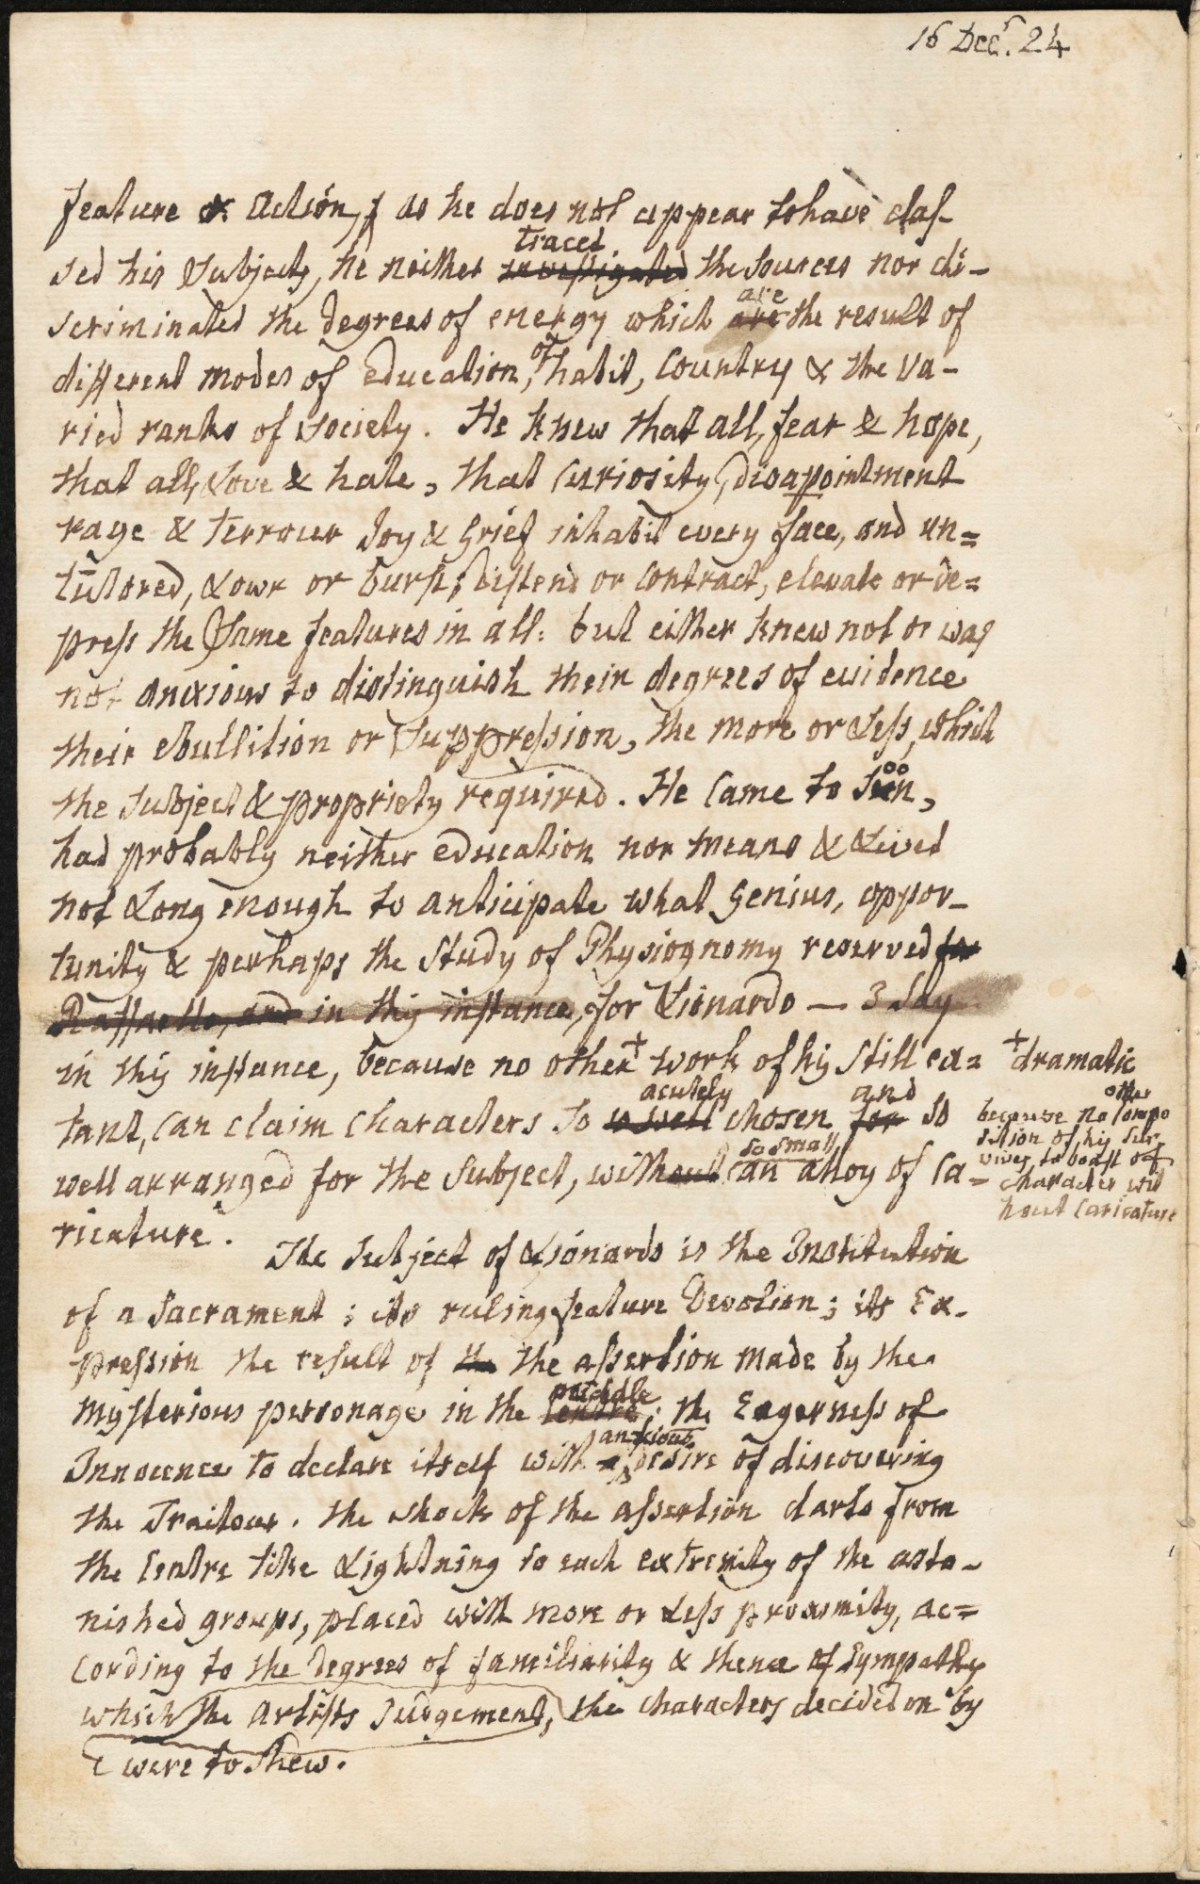 16 Decr. 24
feature & Action, as he does not appear to have claf-
sed his Subjects, he neither investigated the Sources nor di-
traced
scriminated the Degrees of energy which are the result of
are
different modes of Education, habit, Country & the va-
of
ried ranks of Society. He knew that all, fear & hope,
that all, Love & hate, that Curiosity, disapointment
rage & terrour Joy & Grief inhabit every face, and un=
tutored, Lowr or burst, distend or Contract, elevate or de=
prefs the Same features in all: but either knew not or was
not anxious to distinguish their degrees of evidence
their ebullition or Supprefsion, the more or Lefs, which
the Subject & propriety required. He Came to soon,
had probably neither education nor means & Lived
not Long enough to anticipate what Genius, oppor-
tunity & perhaps the Study of Physiognomy reserved for
Raffaello, and in this instance, for Lionardo — I Say
in this instance, because no other + work of his Still ex=
+ dramatic
tant, Can claim Characters So so well chosen for So
acutely and
well arranged for the Subject, without an alloy of Ca=
so small
ricature.
because no other Compo
sition of his sur-
vives to boast of
Character wit
hout Caricature
The Subject of Lionardo is the Institution
of a Sacrament; its ruling feature Devotion; its Ex-
prefsion the result of the the afsertion made by the
Mysterious personage in the Centre; the Eagernefs of
middle
Innocence to declare itself with a desire of discovering
anxious
the Traitour. the shock of the afsertion darts from
the Centre like Lightning to each extremity of the asto-
nished groups, placed with more or Lefs proximity, ac=
Cording to the Degrees of familiarity & thence of Sympathy
which the Artists Judgement, the characters decided on by
were to Shew.